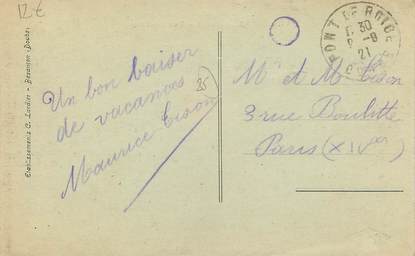 12 €
Etablissements C. Lardier - Besançon (Doubs)
PONT DE ROIDE
30
8 -8
21
Un bon baiser
de vacances
Maurice Cison
25
Mr et Mme Cison
3 rue Boulitte
Paris (XIVe)